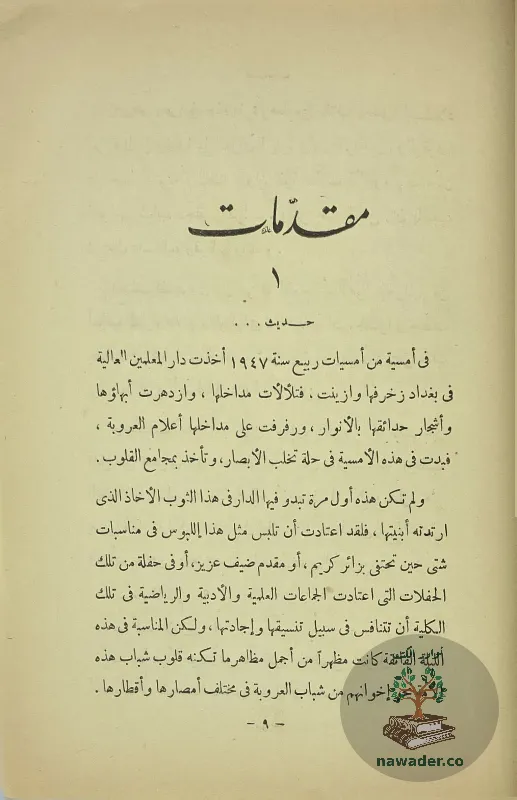 مقدّمات
١
حديث . . .
فى أمسية من أمسيات ربيع سنة ١٩٤٧ أخذت دار المعلمين العالية
فى بغداد زخرفها وازينت ، فتلألأت مداخلها ، وازدهرت أبهاؤها
وأشجار حدائقها بالأنوار ، ورفرفت على مداخلها أعلام العروبة ،
فبدت فى هذه الأمسية فى حلة تخلب الأبصار ، وتأخذ بمجامع القلوب .
ولم تكن هذه أول مرة تبدو فيها الدار فى هذا الثوب الأخاذ الذى
ارتدته أبنيتها ، فلقد اعتادت أن تلبس مثل هذا اللبوس فى مناسبات
شتى حين تحتفى بزائر كريم ، أو مقدم ضيف عزيز ، أو فى حفلة من تلك
الحفلات التى اعتادت الجماعات العلمية والأدبية والرياضية فى تلك
الكلية أن تتنافس فى سبيل تنسيقها وإجادتها ، ولكن المناسبة فى هذه
الليلة كانت مظهراً من أجمل مظاهر ما تكنه قلوب شباب هذه
إخوانهم من شباب العروبة فى مختلف أمصارها وأقطارها .
- ٩ -
nawader.co